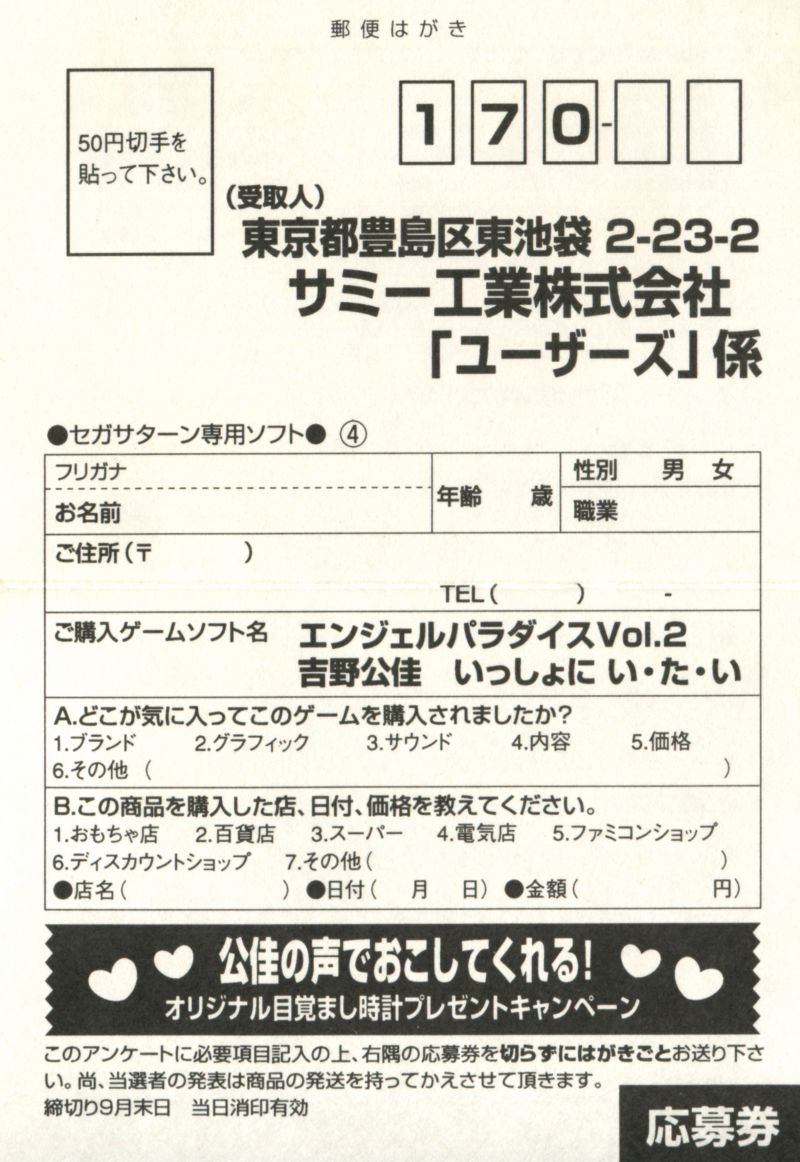 郵便はがき
50円切手を
貼って下さい。
170-
(受取人)
東京都豊島区東池袋 2-23-2
サミー工業株式会社
「ユーザーズ」係
●セガサターン専用ソフト● ④
フリガナ
お名前
年齢 歳
性別 男 女
職業
ご住所(〒 )
TEL( ) -
ご購入ゲームソフト名 エンジェルパラダイスVol.2
吉野公佳 いっしょに い・た・い
A.どこが気に入ってこのゲームを購入されましたか?
1.ブランド 2.グラフィック 3.サウンド 4.内容 5.価格
6.その他 ( )
B.この商品を購入した店、日付、価格を教えてください。
1.おもちゃ店 2.百貨店 3.スーパー 4.電気店 5.ファミコンショップ
6.ディスカウントショップ 7.その他( )
●店名( ) ●日付( 月 日) ●金額( 円)
公佳の声でおこしてくれる!
オリジナル目覚まし時計プレゼントキャンペーン
このアンケートに必要項目記入の上、右隅の応募券を切らずにはがきごとお送り下さ
い。尚、当選者の発表は商品の発送を持ってかえさせて頂きます。
締切り9月末日 当日消印有効
応募券